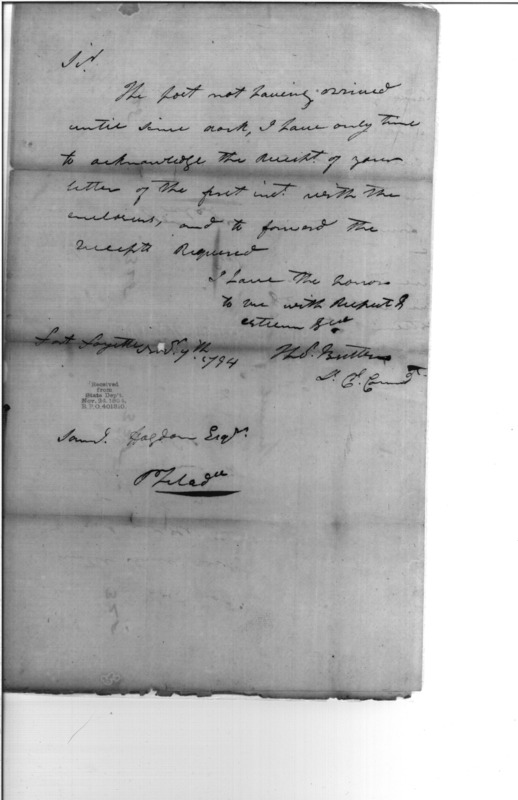 Sir
The post not having arrived
until since dark, I have only time
to acknowledge the Receipt of your
letter of the first inst. with the
enclosures, and to forward the
receipts Required
I have the honor
to be with Respect &
esteem &ca
Fort Fayette 9th 1794 Thos. Butler
Lt. C. Commdt.
Received
from
State Dep't.
Saml. Hogdon Esqr.
Philade